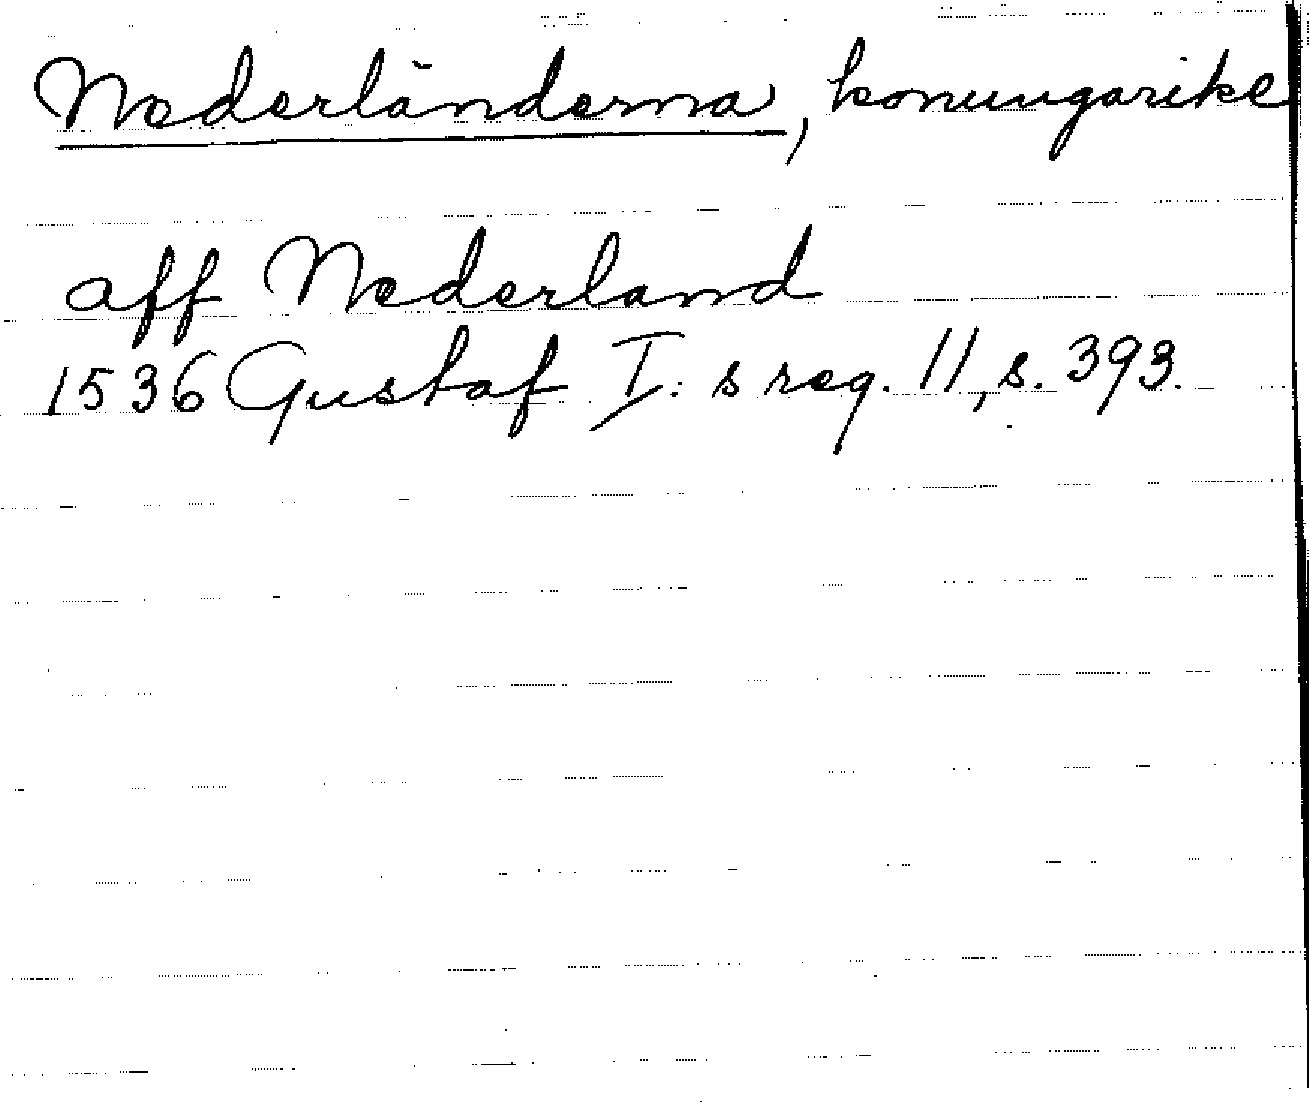 Nederländerna, konungarike
aff Nederland
1536 Gustaf I:s reg. 11, s. 393.